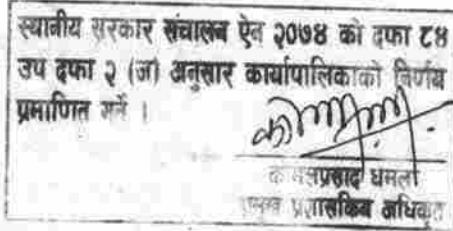 स्थानीय सरकार संचालन ऐन २०७४ को दफा ८४
उप दफा २ (ज) अनुसार कार्यापालिकाको निर्णय
प्रमाणित गर्ने ।
प्रसाद धमला
प्रमुख प्रशासकिय अधिकृत